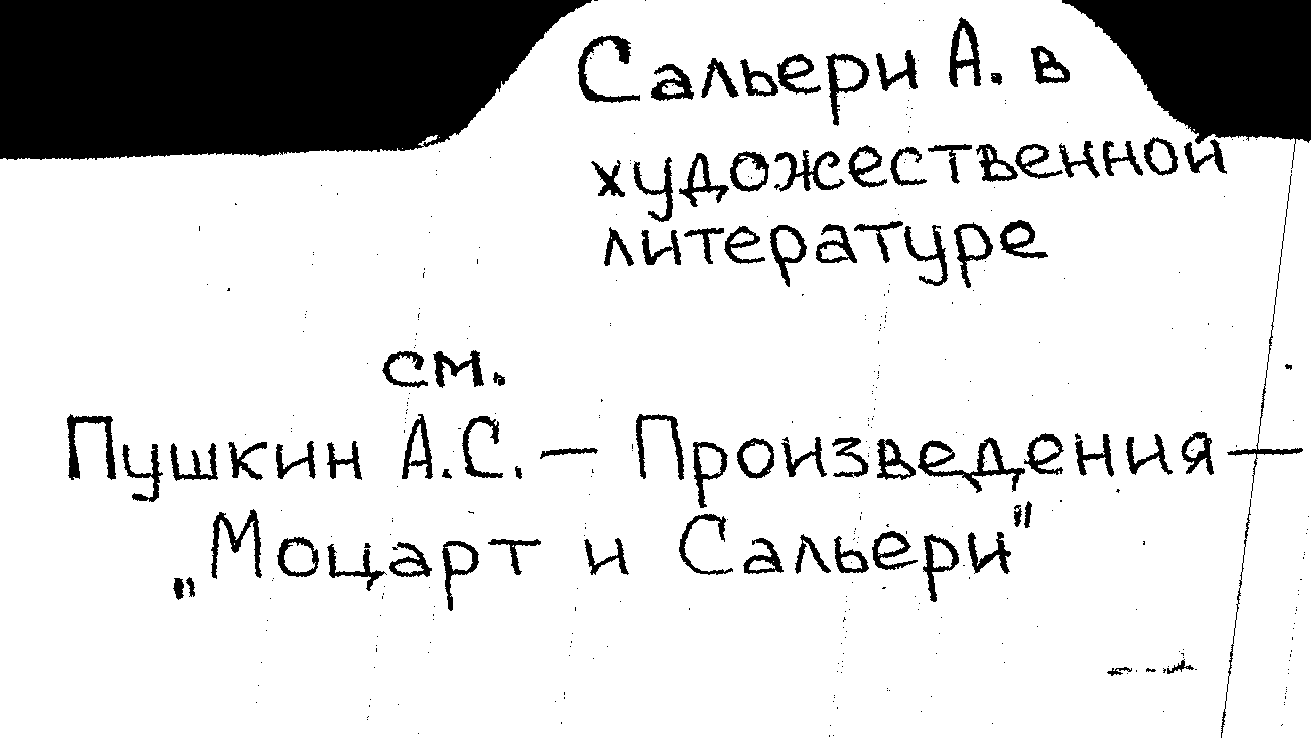 Сальери А. в
художественной
литературе
см.
Пушкин А.С. — Произведения —
„Моцарт и Сальери"